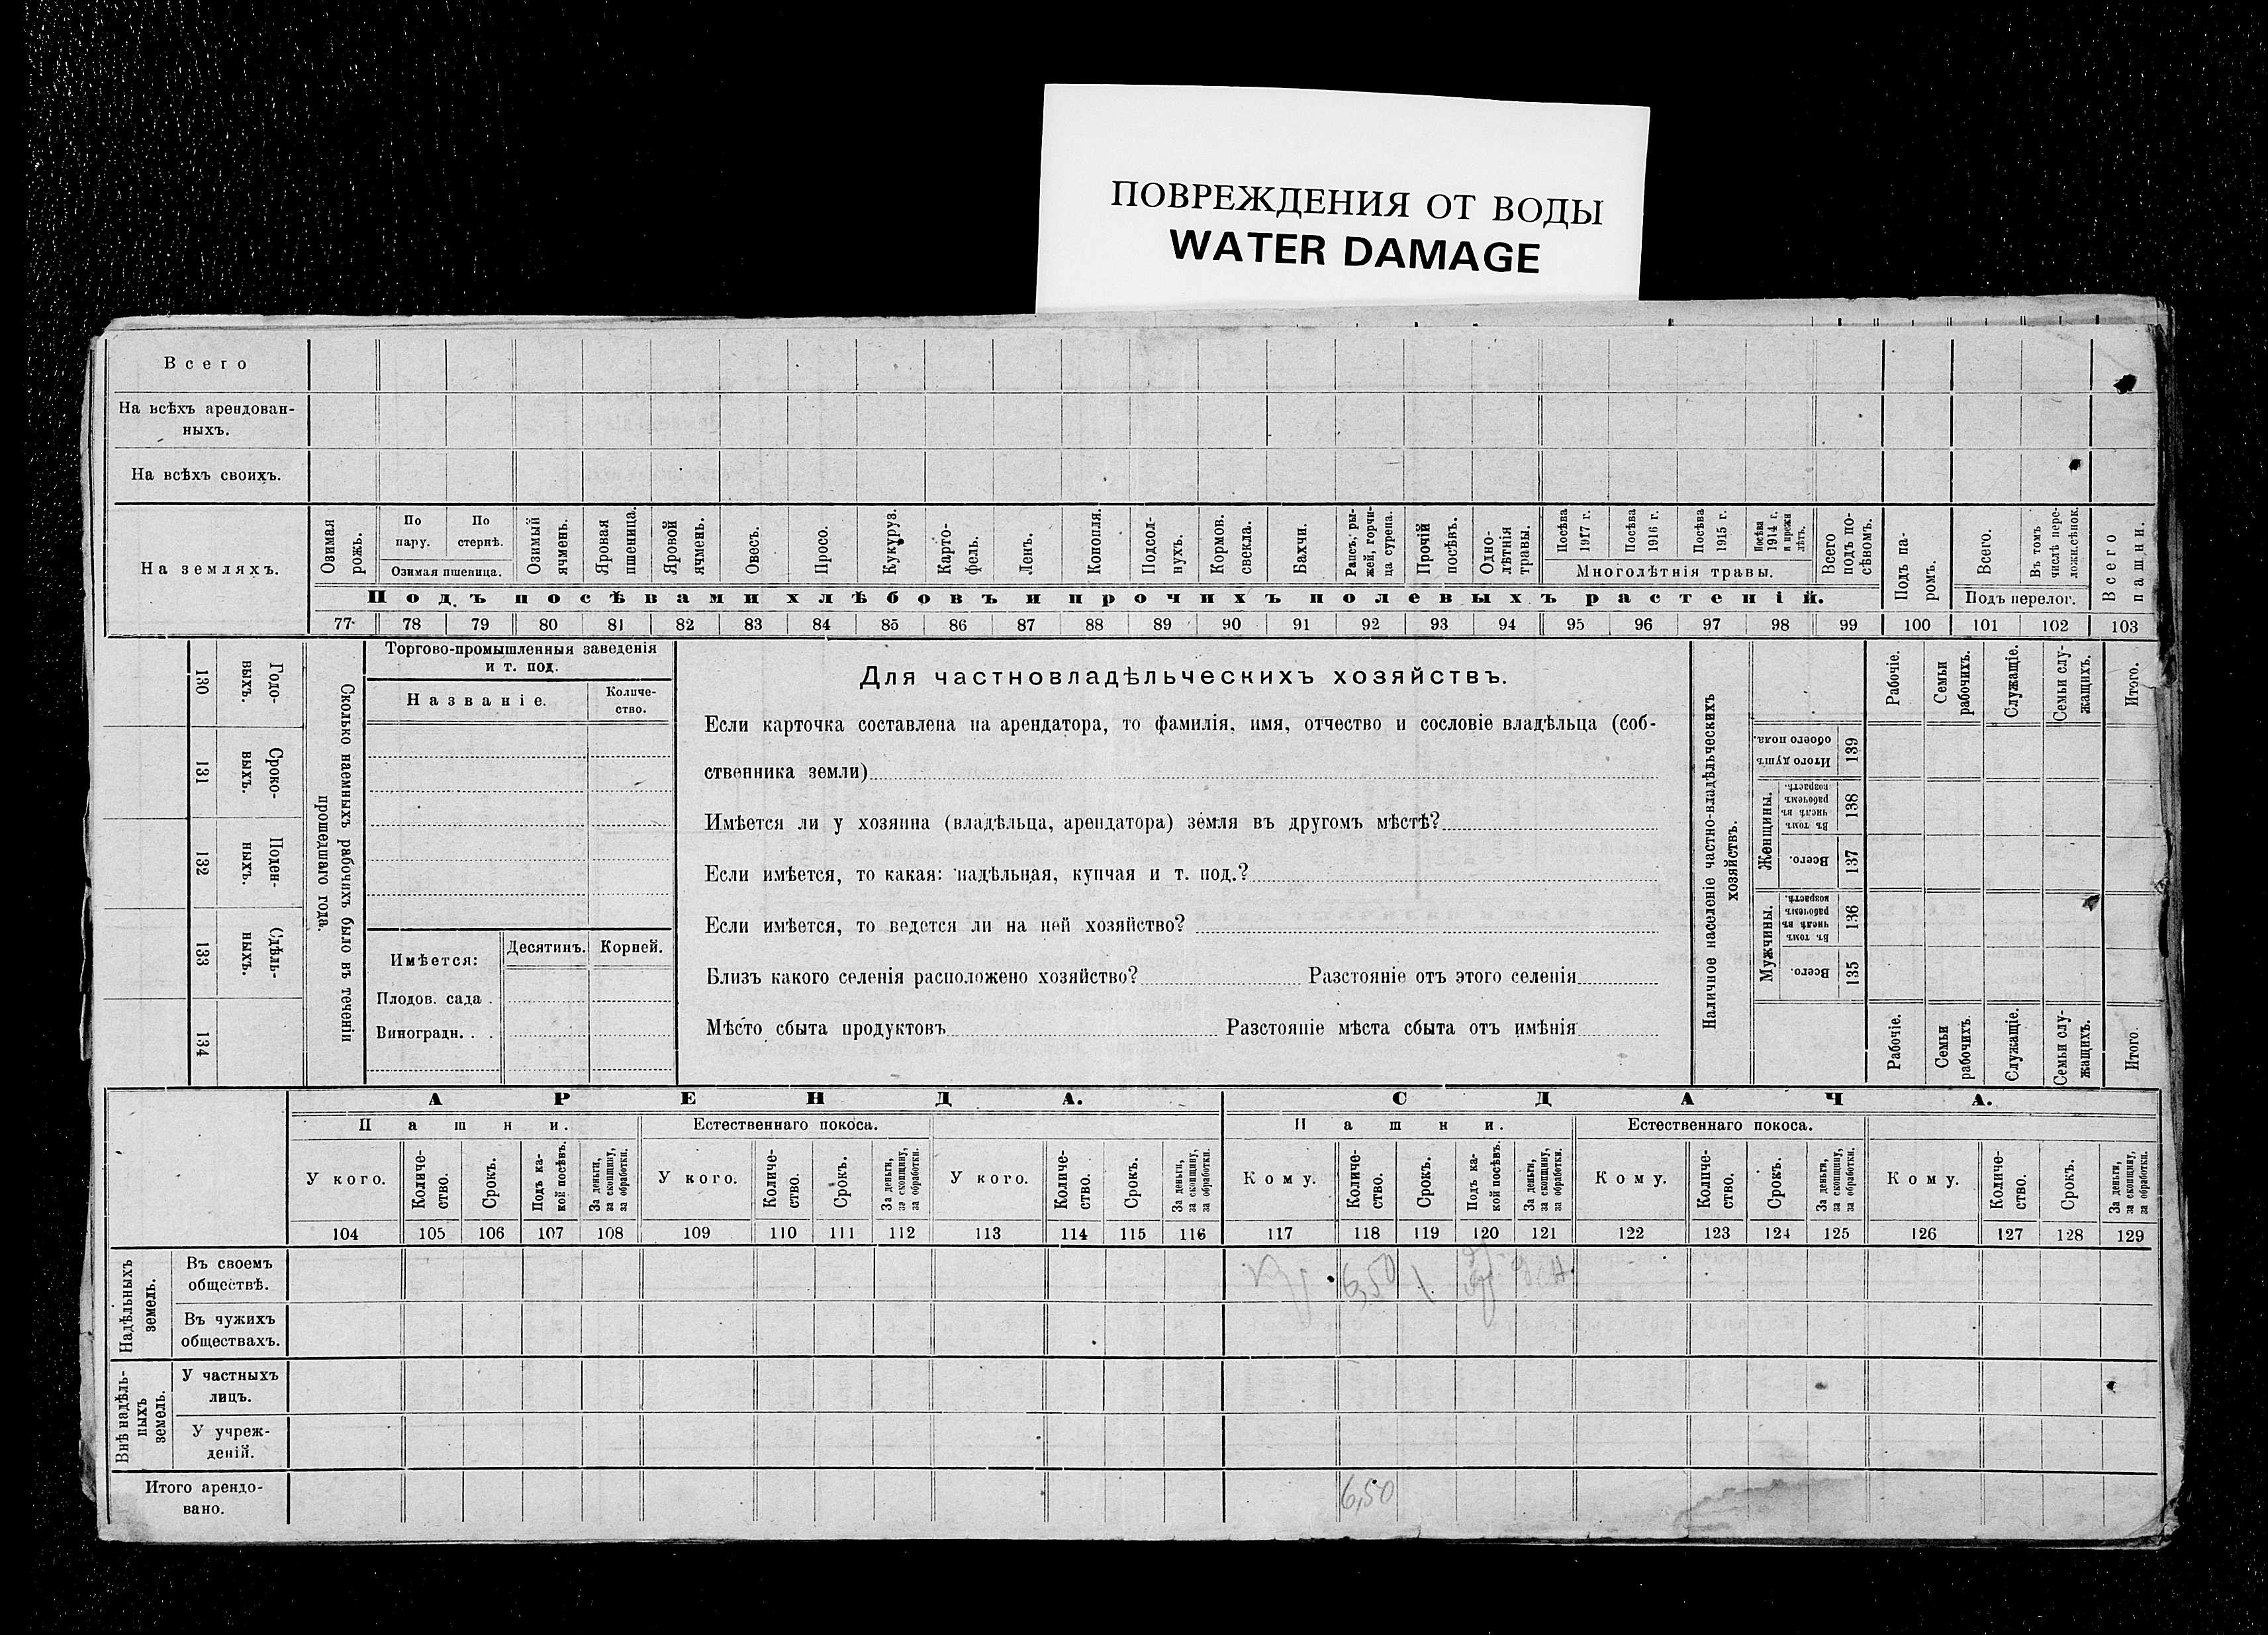 ПОВРЕЖДЕНИЯ ОТ ВОДЫ
WATER DAMAGE
Всего
На всѣхъ арендован-
ныхъ.
На всѣхъ своихъ.
На земляхъ.
Озимая рожь.
По пару.
По стернѣ.
Озимая пшеница.
Озимый ячмень.
Яровая пшеница.
Яровой ячмень.
Овесъ.
Просо.
Кукуруз.
Карто-
фель.
Ленъ.
Конопля.
Подсол-
нухъ.
Кормов. свекла.
Бахчи.
Рапсъ, ры-
жей, горчи-
ца сурепа.
Прочій посѣвъ.
Одно-
лѣтнія травы.
Посѣва 1917 г.
Посѣва 1916 г.
Посѣва 1915 г.
Посѣва 1914 г. и прежн лѣтъ.
Многолѣтнія травы.
Всего подъ по-
сѣвомъ.
Подъ па-
ромъ.
Всего.
Въ томъ числѣ пере-
ложн.сѣнок.
Подъ перелог.
Всего пашни.
Подъ посѣвами хлѣбовъ и прочихъ полевыхъ растеній.
77 78 79 80 81 82 83 84 85 86 87 88 89 90 91 92 93 94 95 96 97 98 99 100 101 102 103
130 Годо-
выхъ.
131 Сроко-
выхъ.
132 Поден-
ныхъ.
133 Сдѣль-
ныхъ.
134
Сколько наемныхъ рабочихъ было въ теченіи
прошедшаго года.
Торгово-промышленныя заведенія
и т. под.
Названіе.
Количе-
ство.
Имѣется:
Десятинъ.
Корней.
Плодов. сада .
Виноградн. . .
Для частновладѣльческихъ хозяйствъ.
Если карточка составлена на арендатора, то фамилія, имя, отчество и сословіе владѣльца (соб-
ственника земли)
Имѣется ли у хозяина (владѣльца, арендатора) земля въ другомъ мѣстѣ?
Если имѣется, то какая: надѣльная, купчая и т. под.?
Если имѣется, то ведется ли на ней хозяйство?
Близъ какого селенія расположено хозяйство? Разстояніе отъ этого селенія
Мѣсто сбыта продуктовъ Разстояніе мѣста сбыта отъ имѣнія
Наличное населеніе частно-владѣльческихъ
хозяйствъ.
Рабочіе.
Семьи рабочихъ.
Служащіе.
Семьи слу-
жащихъ.
Итого.
Итого душъ обоего пола. 139
Женщины.
Въ томъ числѣ въ рабочемъ возрастѣ. 138
Всего. 137
Мужчины.
Въ томъ числѣ въ рабочемъ возрастѣ. 136
Всего. 135
Рабочіе.
Семьи рабочихъ.
Служащіе.
Семьи слу-
жащихъ.
Итого.
АРЕНДА.
СДАЧА.
Пашни.
Естественнаго покоса.
Пашни.
Естественнаго покоса.
У кого.
Количе-
ство.
Срокъ.
Подъ ка-
кой посѣвъ.
За деньги,
за скопщину,
за обработки.
У кого.
Количе-
ство.
Срокъ.
За деньги,
за скопщину,
за обработки.
У кого.
Количе-
ство.
Срокъ.
За деньги,
за скопщину,
за обработки.
Кому.
Количе-
ство.
Срокъ.
Подъ ка-
кой посѣвъ.
За деньги,
за скопщину,
за обработки.
Кому.
Количе-
ство.
Срокъ.
За деньги,
за скопщину,
за обработки.
Кому.
Количе-
ство.
Срокъ.
За деньги,
за скопщину,
за обработки.
104 105 106 107 108 109 110 111 112 113 114 115 116 117 118 119 120 121 122 123 124 125 126 127 128 129
Надѣльныхъ
земель.
Въ своемъ
обществѣ.
6,50 1
Въ чужихъ
обществахъ.
Внѣ надѣль-
ныхъ
земель.
У частныхъ
лицъ.
У учреж-
деній.
Итого арендо-
вано.
6,50